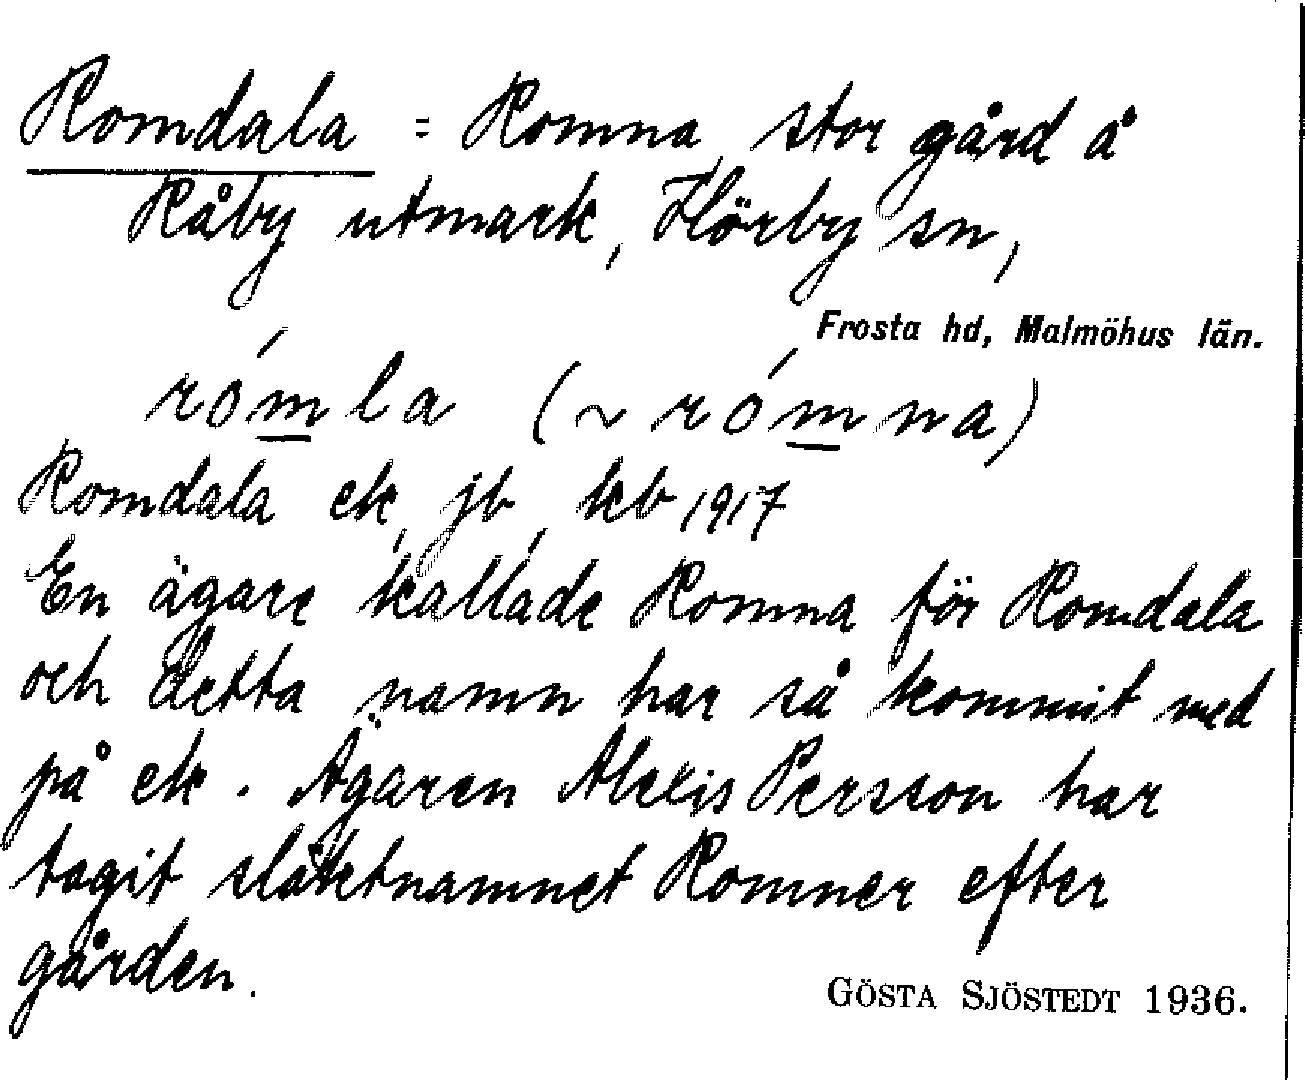 Romdala = Romna, stor gård å
Råby utmark, Hörby sn,
Frosta hd, Malmöhus län.
rómla (~ rómna)
Romdala ek, jb, kb 1917
En ägare kallade Romna för Romdala
och detta namn har så kommit med
på ek. Ägaren Alexis Persson har
tagit släktnamnet Romner efter
gården.
GÖSTA SJÖSTEDT 1936.